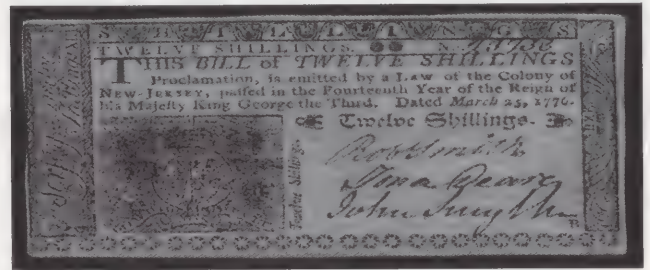 S H I L L I N G S
TWELVE SHILLINGS. No.
THIS BILL of TWELVE SHILLINGS
Proclamation, is emitted by a Law of the Colony of
NEW-JERSEY, paſſed in the Fourteenth Year of the Reign of
his Majeſty King George the Third. Dated March 25, 1776.
Twelve Shillings.
Twelve Shillings.
Robt Smith
Jona Deare
John Smyth